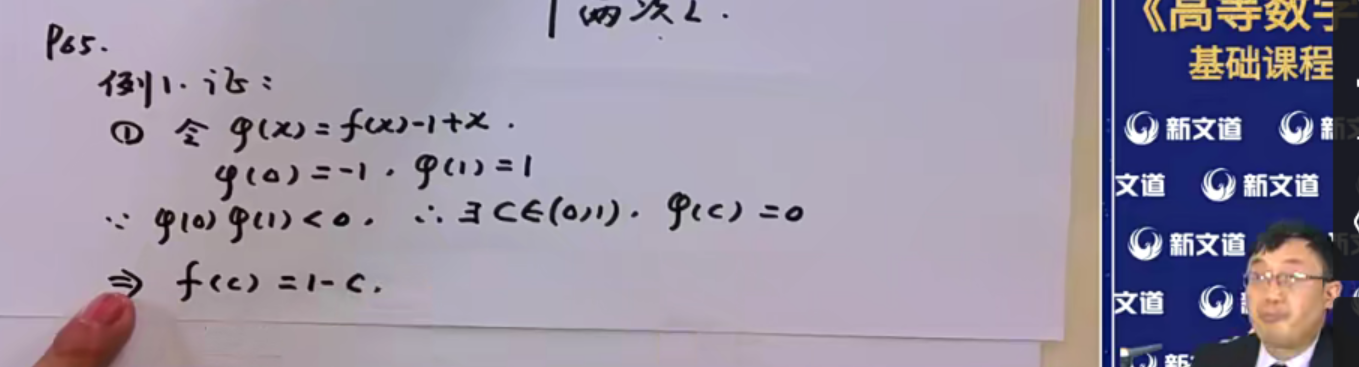 两次L.
P65.
例1. 证:
① 令 φ(x)=f(x)-1+x.
φ(0)=-1. φ(1)=1
∵ φ(0)φ(1)<0. ∴ ∃ C∈(0,1). φ(c)=0
⇒ f(c)=1-c.
《高等数学
基础课程
新文道 新
文道 新文道
新文道
文道
新